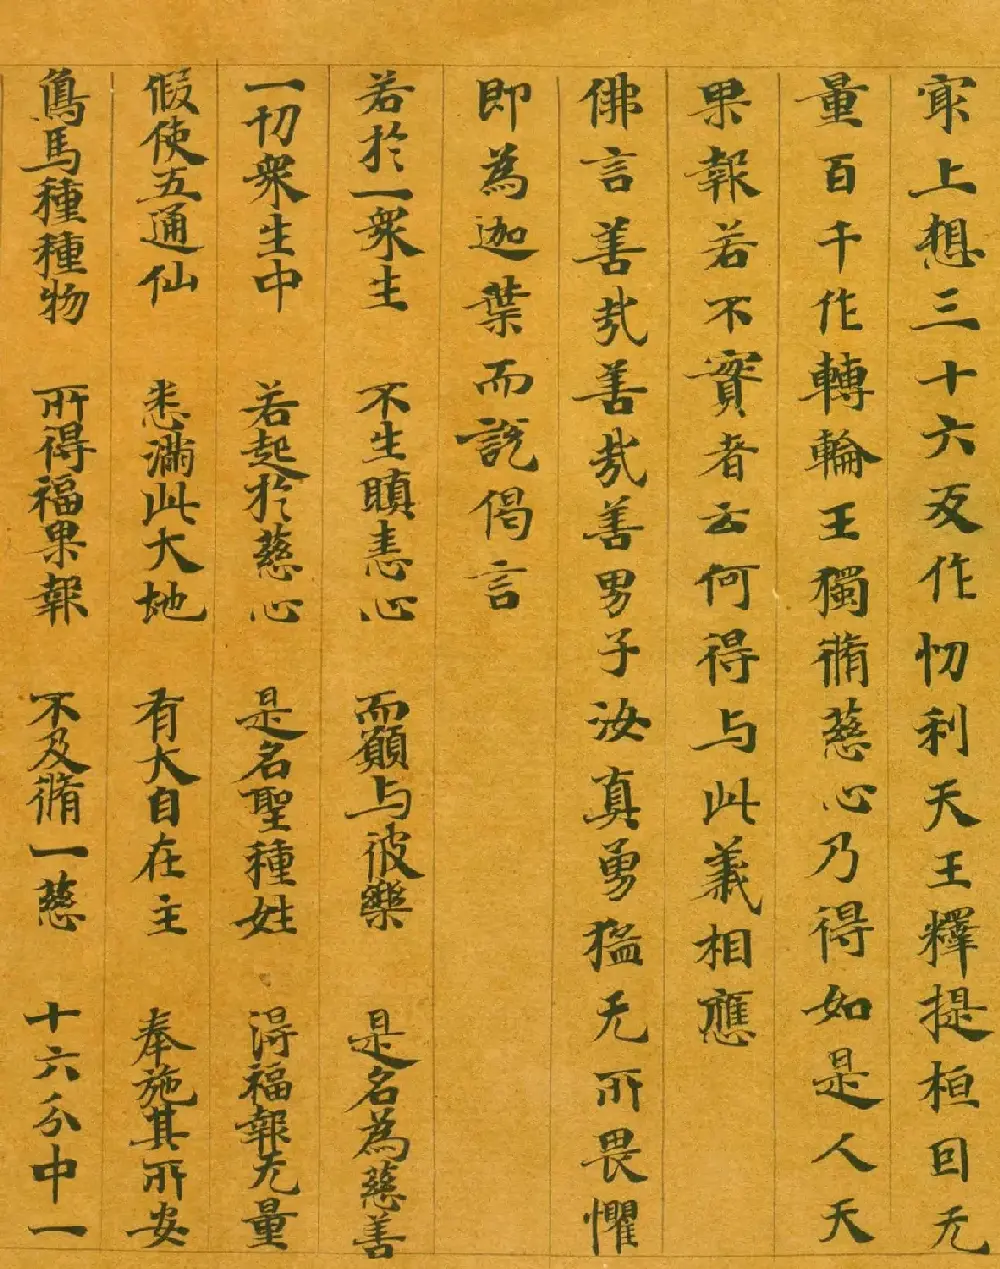 冣上想三十六反作忉利天王釋提桓因无
量百千作轉輪王獨脩慈心乃得如是人天
果報若不實者云何得与此義相應
佛言善哉善哉善男子汝真勇猛无所畏懼
即為迦葉而說偈言
若於一衆生　不生瞋恚心　而願与彼樂　是名為慈善
一切衆生中　若起於慈心　是名聖種姓　得福報无量
假使五通仙　悉滿此大地　有大自在主　奉施其所安
鳥馬種種物　所得福果報　不及脩一慈　十六分中一